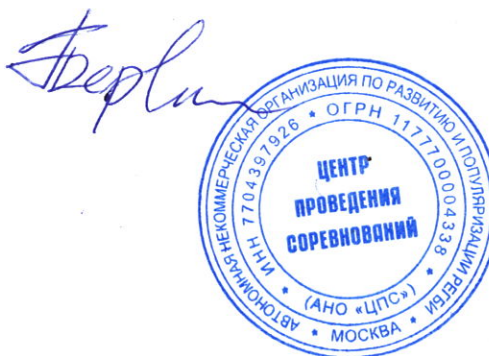 АВТОНОМНАЯ НЕКОММЕРЧЕСКАЯ ОРГАНИЗАЦИЯ ПО РАЗВИТИЮ И ПОПУЛЯРИЗАЦИИ РЕГБИ
* МОСКВА *
ИНН 7704397926 * ОГРН 1177700004338 *
(АНО «ЦПС») *
ЦЕНТР
ПРОВЕДЕНИЯ
СОРЕВНОВАНИЙ